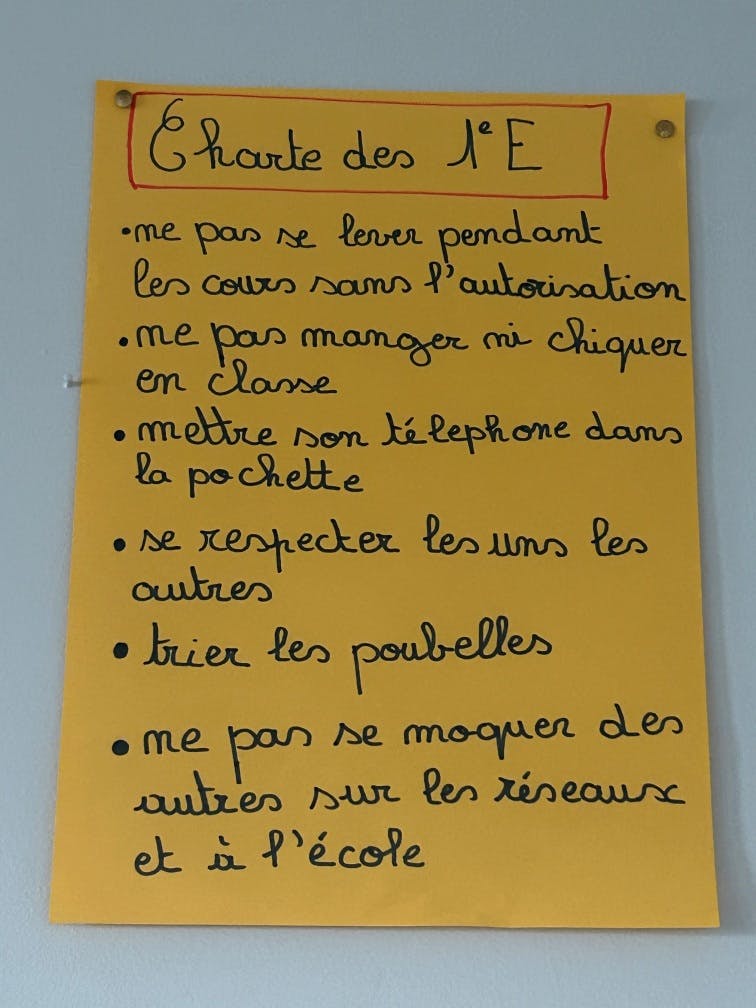 Charte des 1e E
• ne pas se lever pendant
les cours sans l'autorisation
• ne pas manger ni chiquer
en classe
• mettre son télephone dans
la pochette
• se respecter les uns les
autres
• trier les poubelles
• ne pas se moquer des
autres sur les réseaux
et à l'école